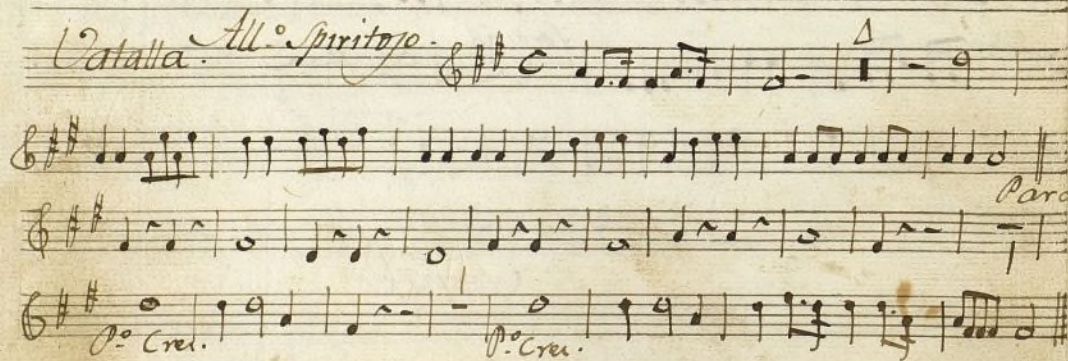 Vatalla. All.º Spiritoso.
Δ
Para
P.º Cres.
P.º Cres.